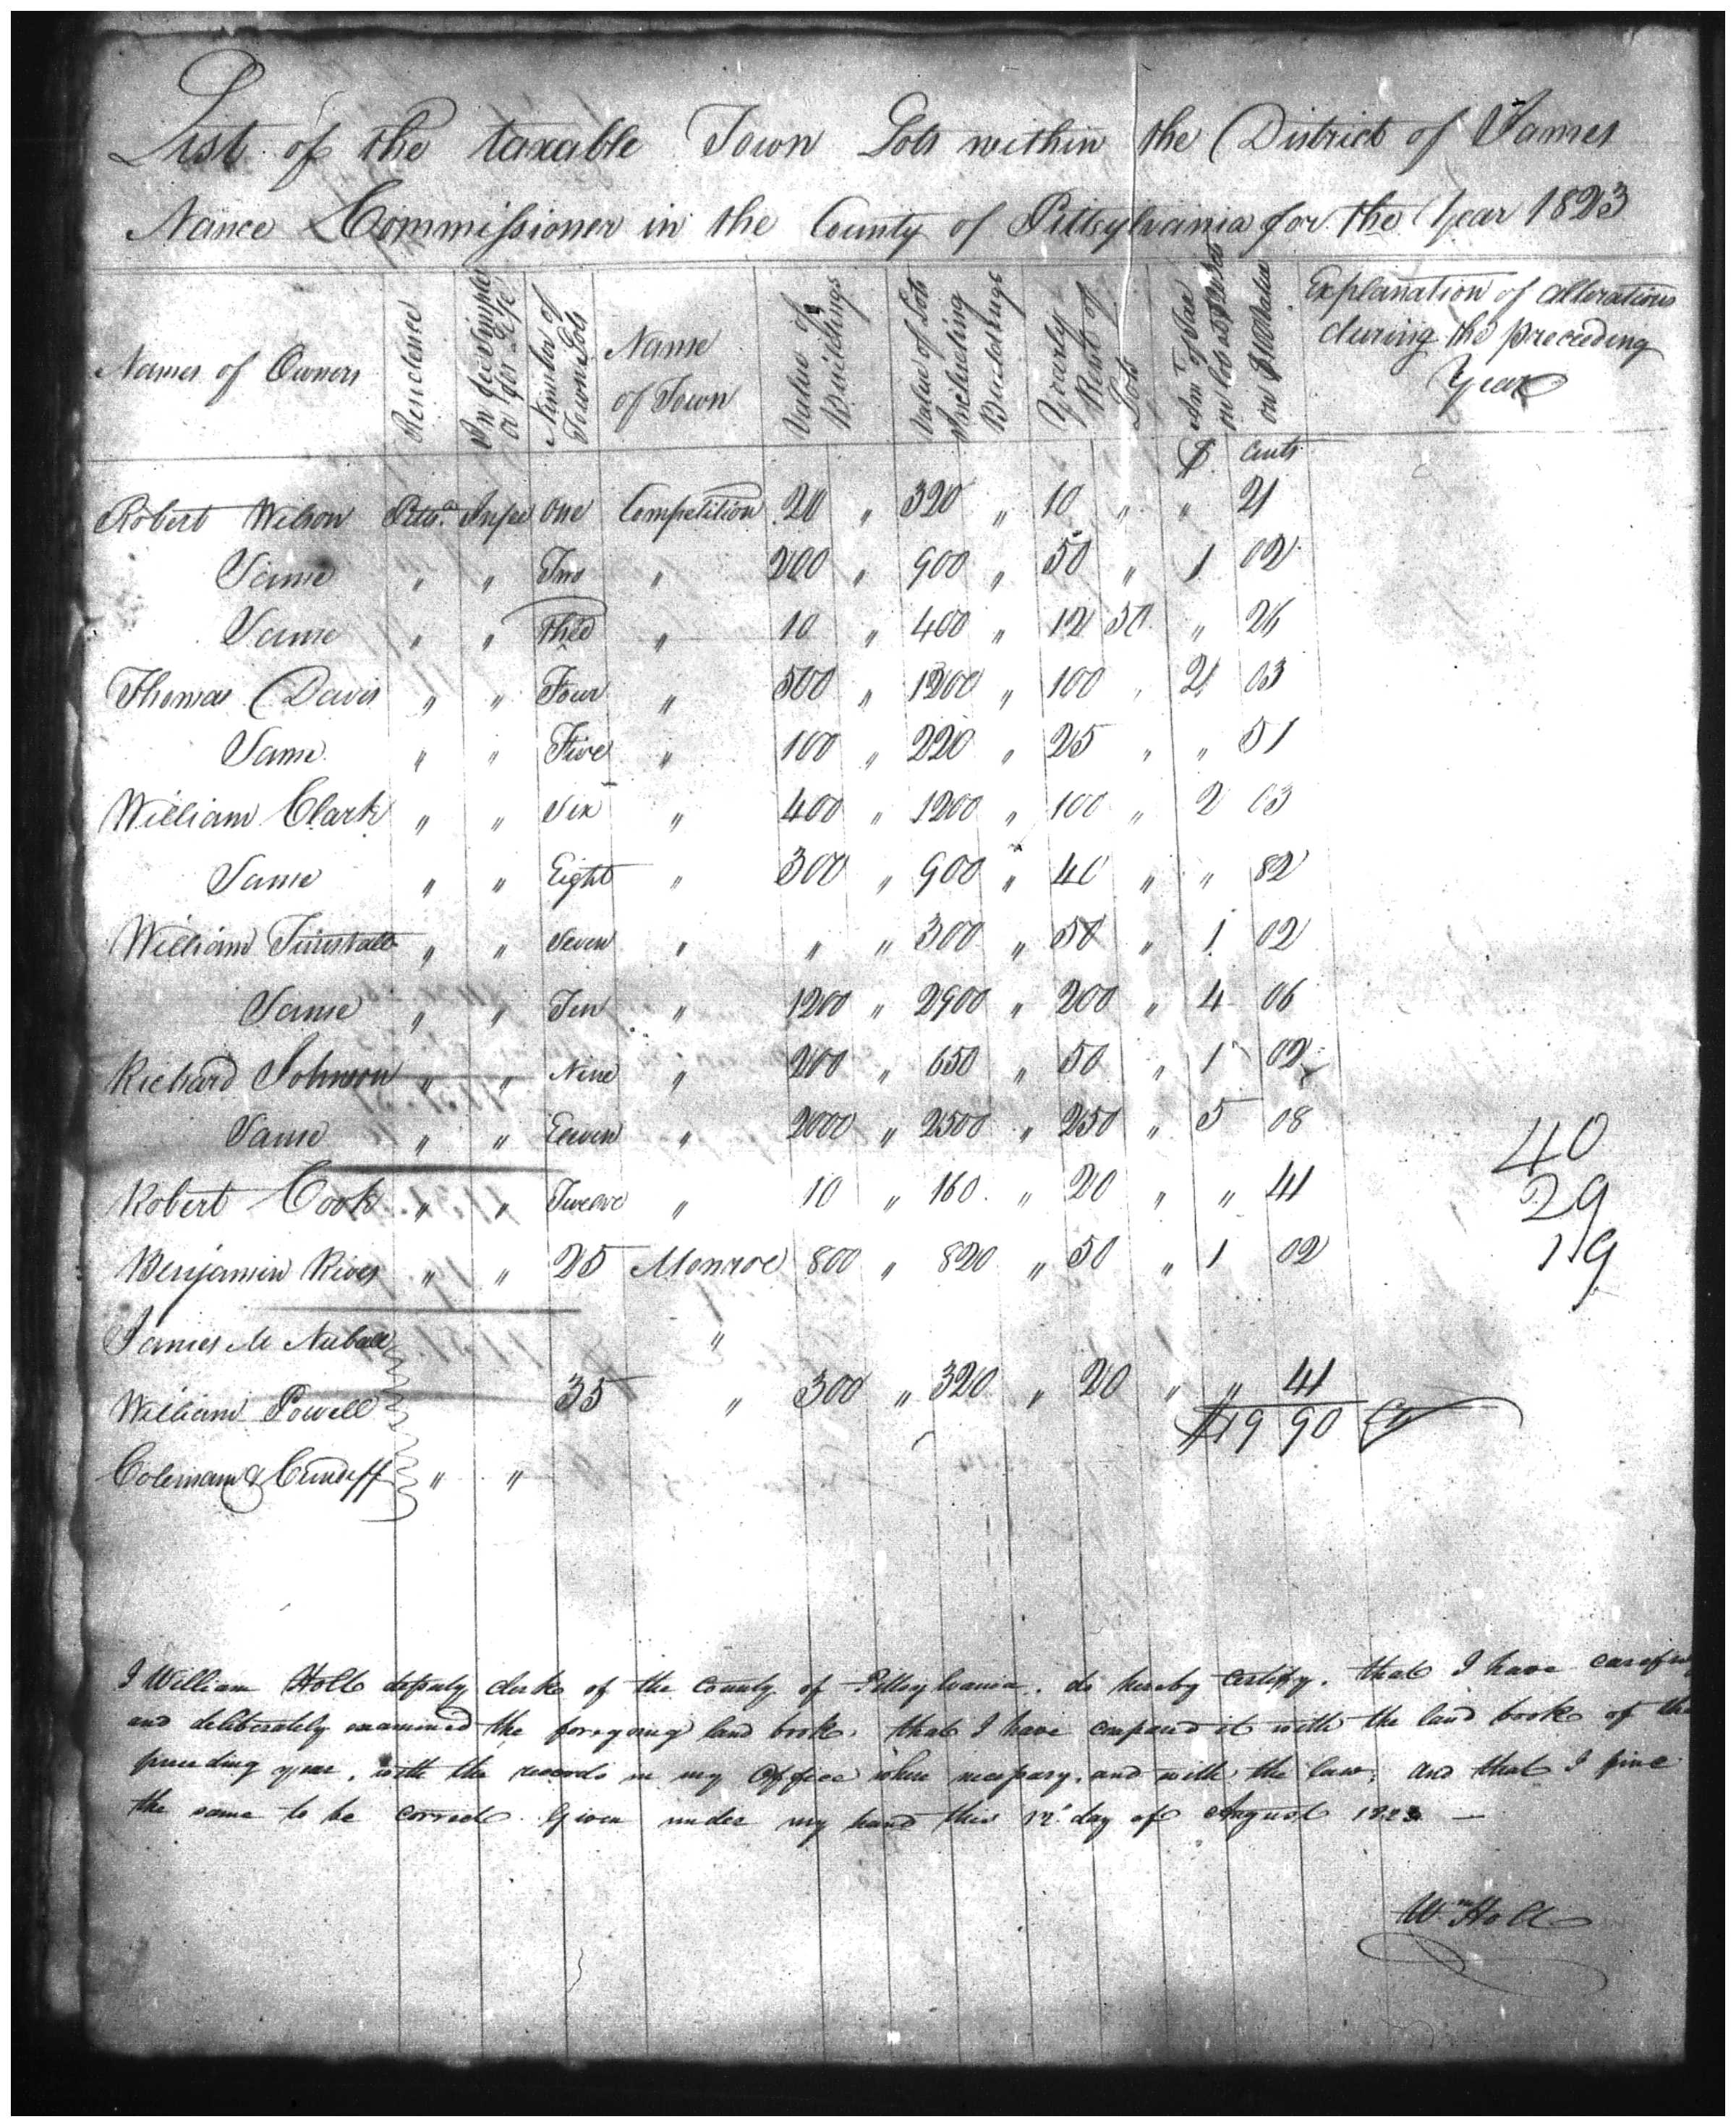 List of the taxable Town Lots within the District of James
Nance Commissioner in the County of Pittsylvania for the Year 1823
Names of Owners | Residence | In fee simple or for Life | Number of Town Lots | Name of Town | Value of Buildings | Value of Lots Including Buildings | Yearly Rent of Lots | Amt of Tax on lots at on $100 Value | Explanation of alterations during the preceeding Year
$ cents
Robert Wilson Pitts.a Infee One Competition 20 " 320 " 10 " " 21
Same " " Two " 200 " 900 " 50 " 1 02
Same " " " 10 " 400 " 12 50 " 26
Thomas Davis " " Four " 500 " 1200 " 100 " 2 03
Same " " Five " 100 " 220 " 25 " " 51
William Clark " " Six " 400 " 1200 " 100 " 2 03
Same " " Eight " 300 " 900 " 40 " " 82
William Tunstall " " Seven " " " 300 " 50 " 1 02
Same " " Ten " 1200 " 2900 " 200 " 4 06
Richard Johnson " " Nine " 200 " 650 " 50 " 1 02
Same " " Eleven " 2000 " 2500 " 250 " 5 08
40
Robert Cook " " Twelve " 10 " 160 " 20 " " 41
29
Benjamin Rives " " 25 Monroe 800 " 820 " 50 " 1 02
119
James M "
William Powell 35 " 300 " 320 " 20 " " 41
$19 90
Coleman & Cundiff " "
I William Holt deputy clerk of the county of Pittsylvania, do hereby certify, that I have carefu
and deliberately examined the foregoing land book, that I have compared it with the land book of the
preceding year, with the records in my Office where necessary, and with the law, and that I find
the same to be correct. Given under my hand this 12th day of August 1823 —
Wm Holt